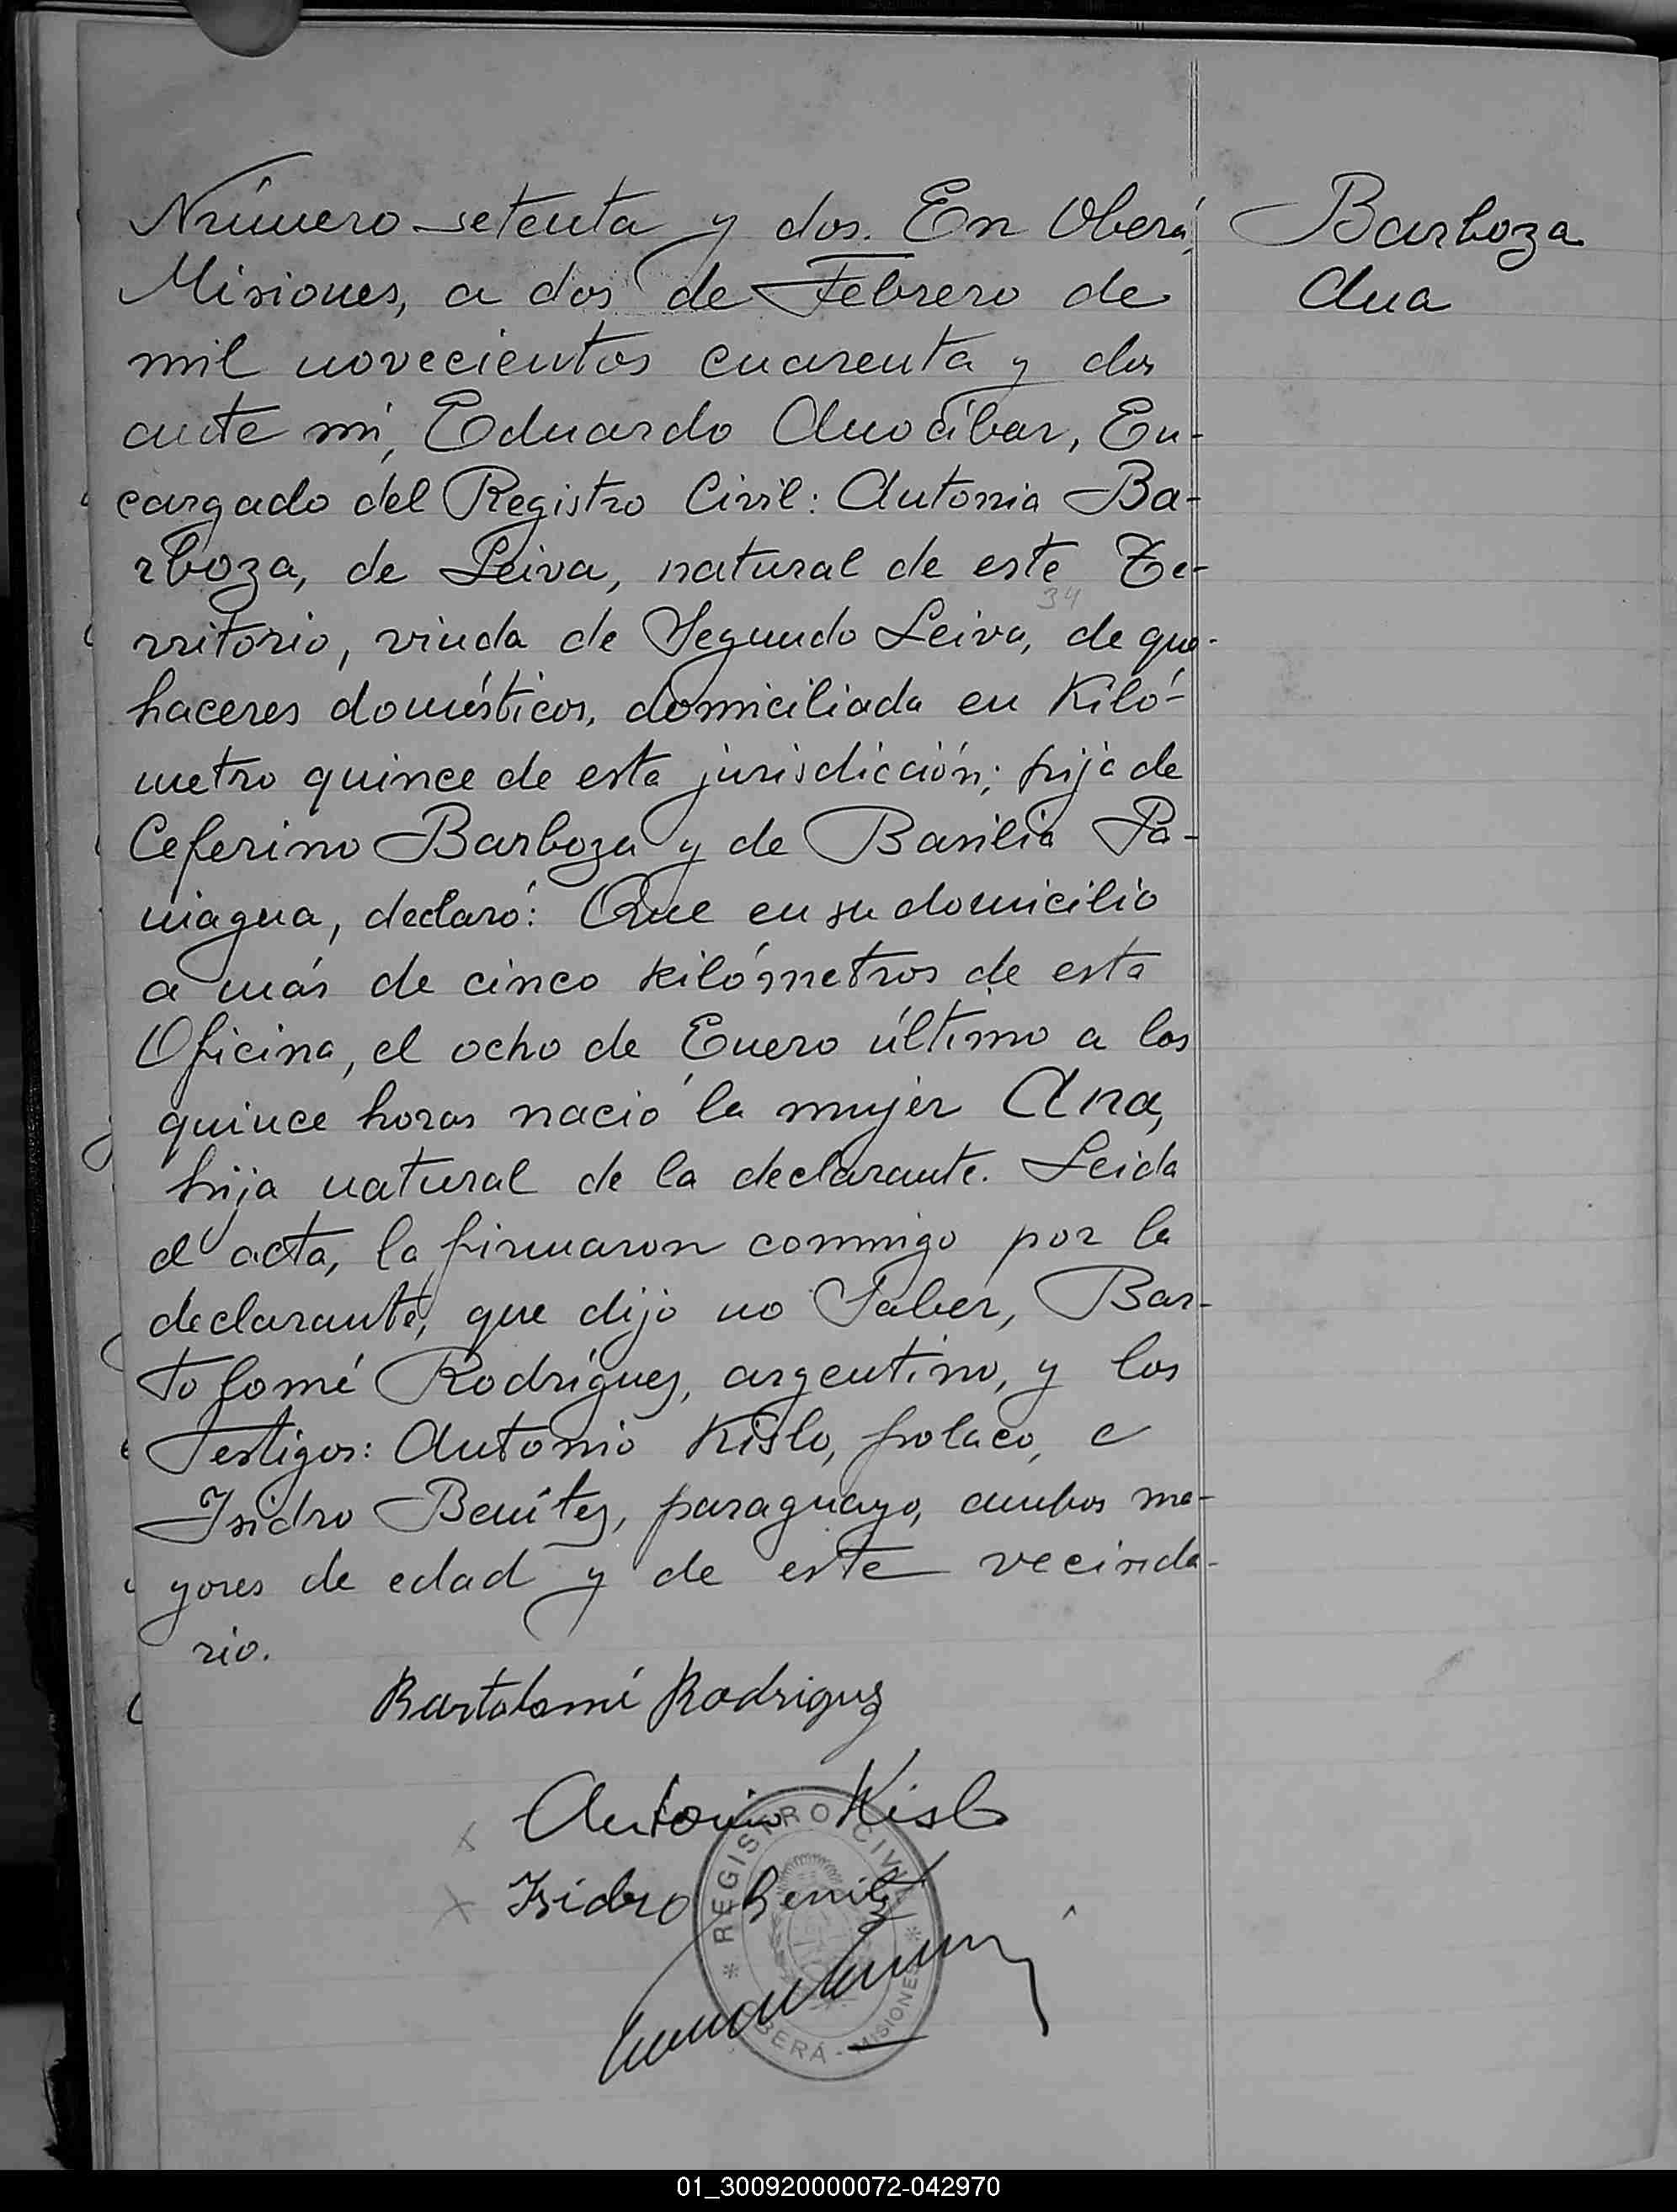 Número setenta y dos. En Oberá,
Misiones, a dos de Febrero de
mil novecientos cuarenta y dos
ante mí, Eduardo Anocíbar, En-
cargado del Registro Civil: Antonia Ba-
rboza, de Leiva, natural de este Te-
34
rritorio, viuda de Segundo Leiva, de que-
haceres domésticos, domiciliada en Kiló-
metro quince de esta jurisdicción; hija de
Ceferino Barboza y de Basilia Pa-
niagua, declaró: Que en su domicilio
a más de cinco kilómetros de esta
Oficina, el ocho de Enero último a las
quince horas nació la mujer Ana,
hija natural de la declarante. Leida
el acta, la firmaron conmigo por la
declarante, que dijo no Saber, Bar-
tolomé Rodríguez, argentino, y los
Testigos: Antonio Kislo, polaco, e
Isidro Benítez, paraguayo, ambos ma-
yores de edad y de este vecinda-
rio.
Barboza
Ana
Bartolomé Rodriguez
Antonio Kislo
Isidro Benitez
REGISTRO CIVIL
OBERÁ - MISIONES
01_300920000072-042970